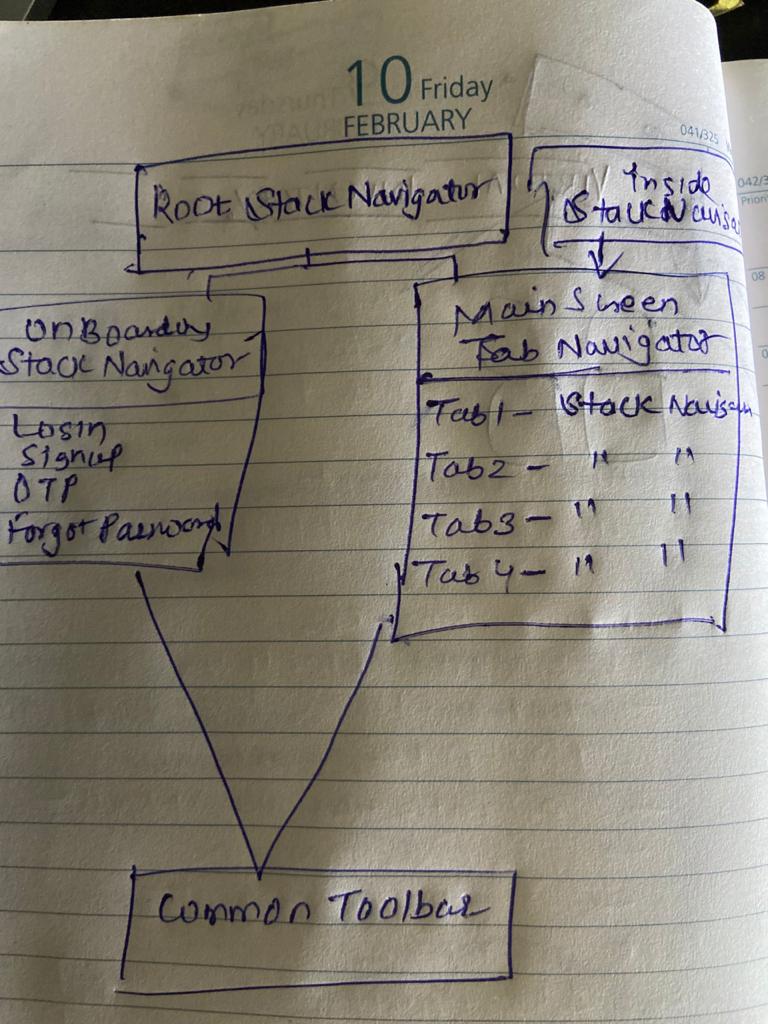 10 Friday
FEBRUARY
041/325
042/3
Root Stack Navigator
Inside
Stack Naviga
08
OnBoarding
Stack Navigator
Login
Signup
OTP
Forgot Password
Main Screen
Tab Navigator
Tab 1 - Stack Navigan
Tab 2 - " "
Tab 3 - " "
Tab 4 - " "
Common Toolbar